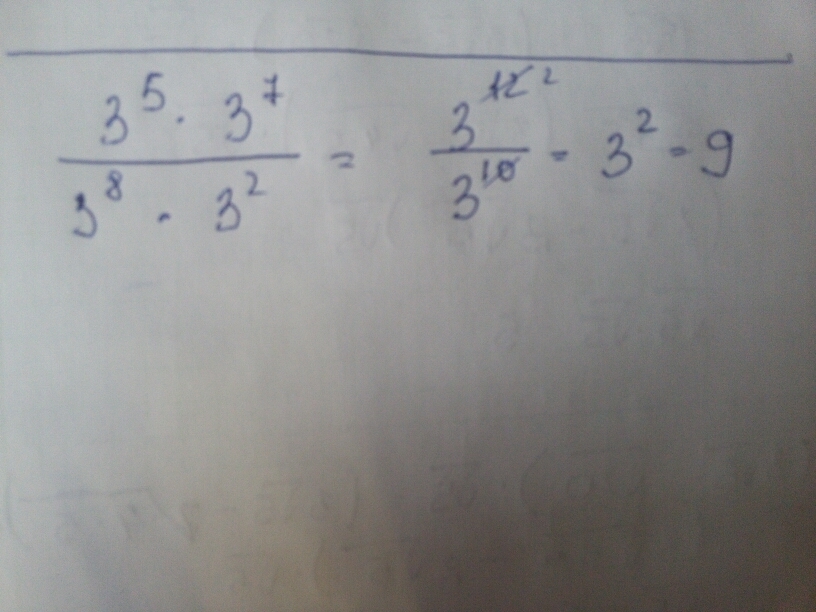 3⁵ · 3⁷ / 3⁸ · 3² = 3¹² ² / 3¹⁰ = 3² = 9